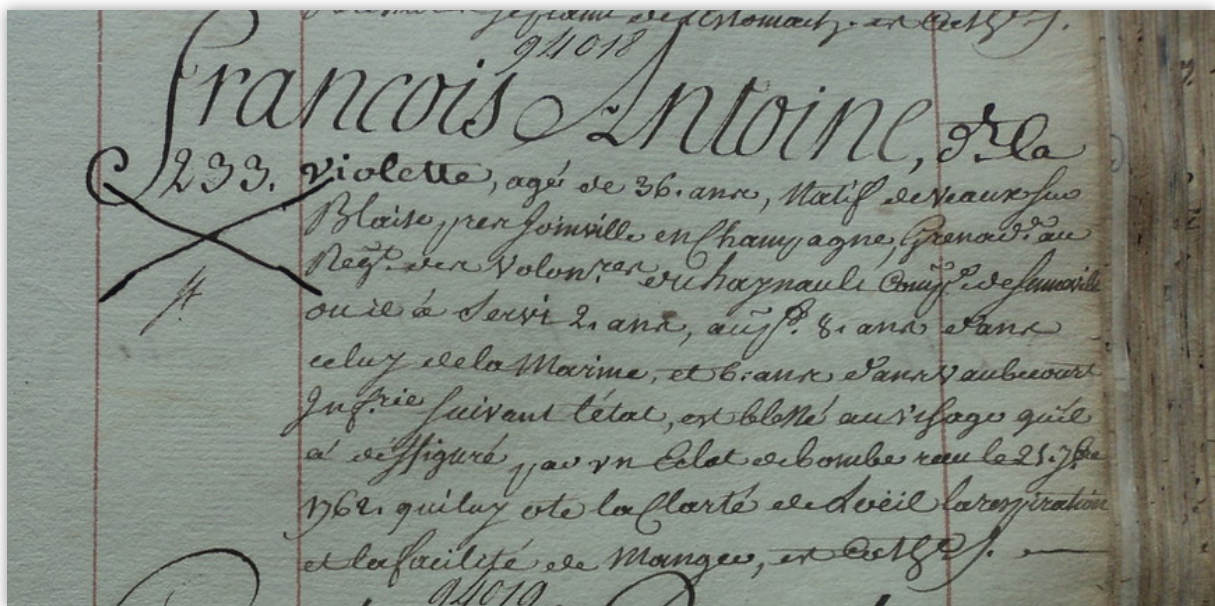 de Lestomach, est Cath.
94018
francois Antoine, dt. la
233. violette, agé de 36. ans, Natif de Veaux sur
Blaise, pres Joinville en Champagne, Grenad.r au
Reg.t des Volon.res du haynault Comp.e de Senneville
ou il a Servi 2. ans, aup.t 8. ans dans
celuy de la Marine, et 6. ans dans Vaubecourt
Inf.rie suivant l'état, est blessé au visage qu'il
a déffiguré, par un Eclat de bombe reçu le 21. 7.bre
1762. qui luy ote la Clarté de L'oeil la respiration
et la facilité de Manger, est Cath.
94019